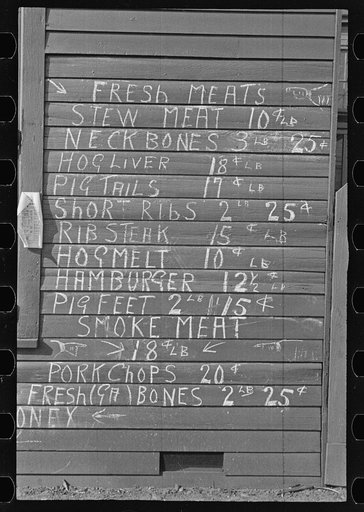 FRESH MEATS
STEW MEAT 10¢ LB
NECK BONES 3 LB 25¢
HOG LIVER 18¢ LB
PIG TAILS 17¢ LB
SHORT RIBS 2 LB 25¢
RIB STEAK 15¢ LB
HOG MELT 10¢ LB
HAMBURGER 12½¢ LB
PIG FEET 2 LB 15¢
SMOKE MEAT
→ 18¢ LB ←
PORK CHOPS 20¢
FRESH (GM) BONES 2 LB 25¢
ONEX ←